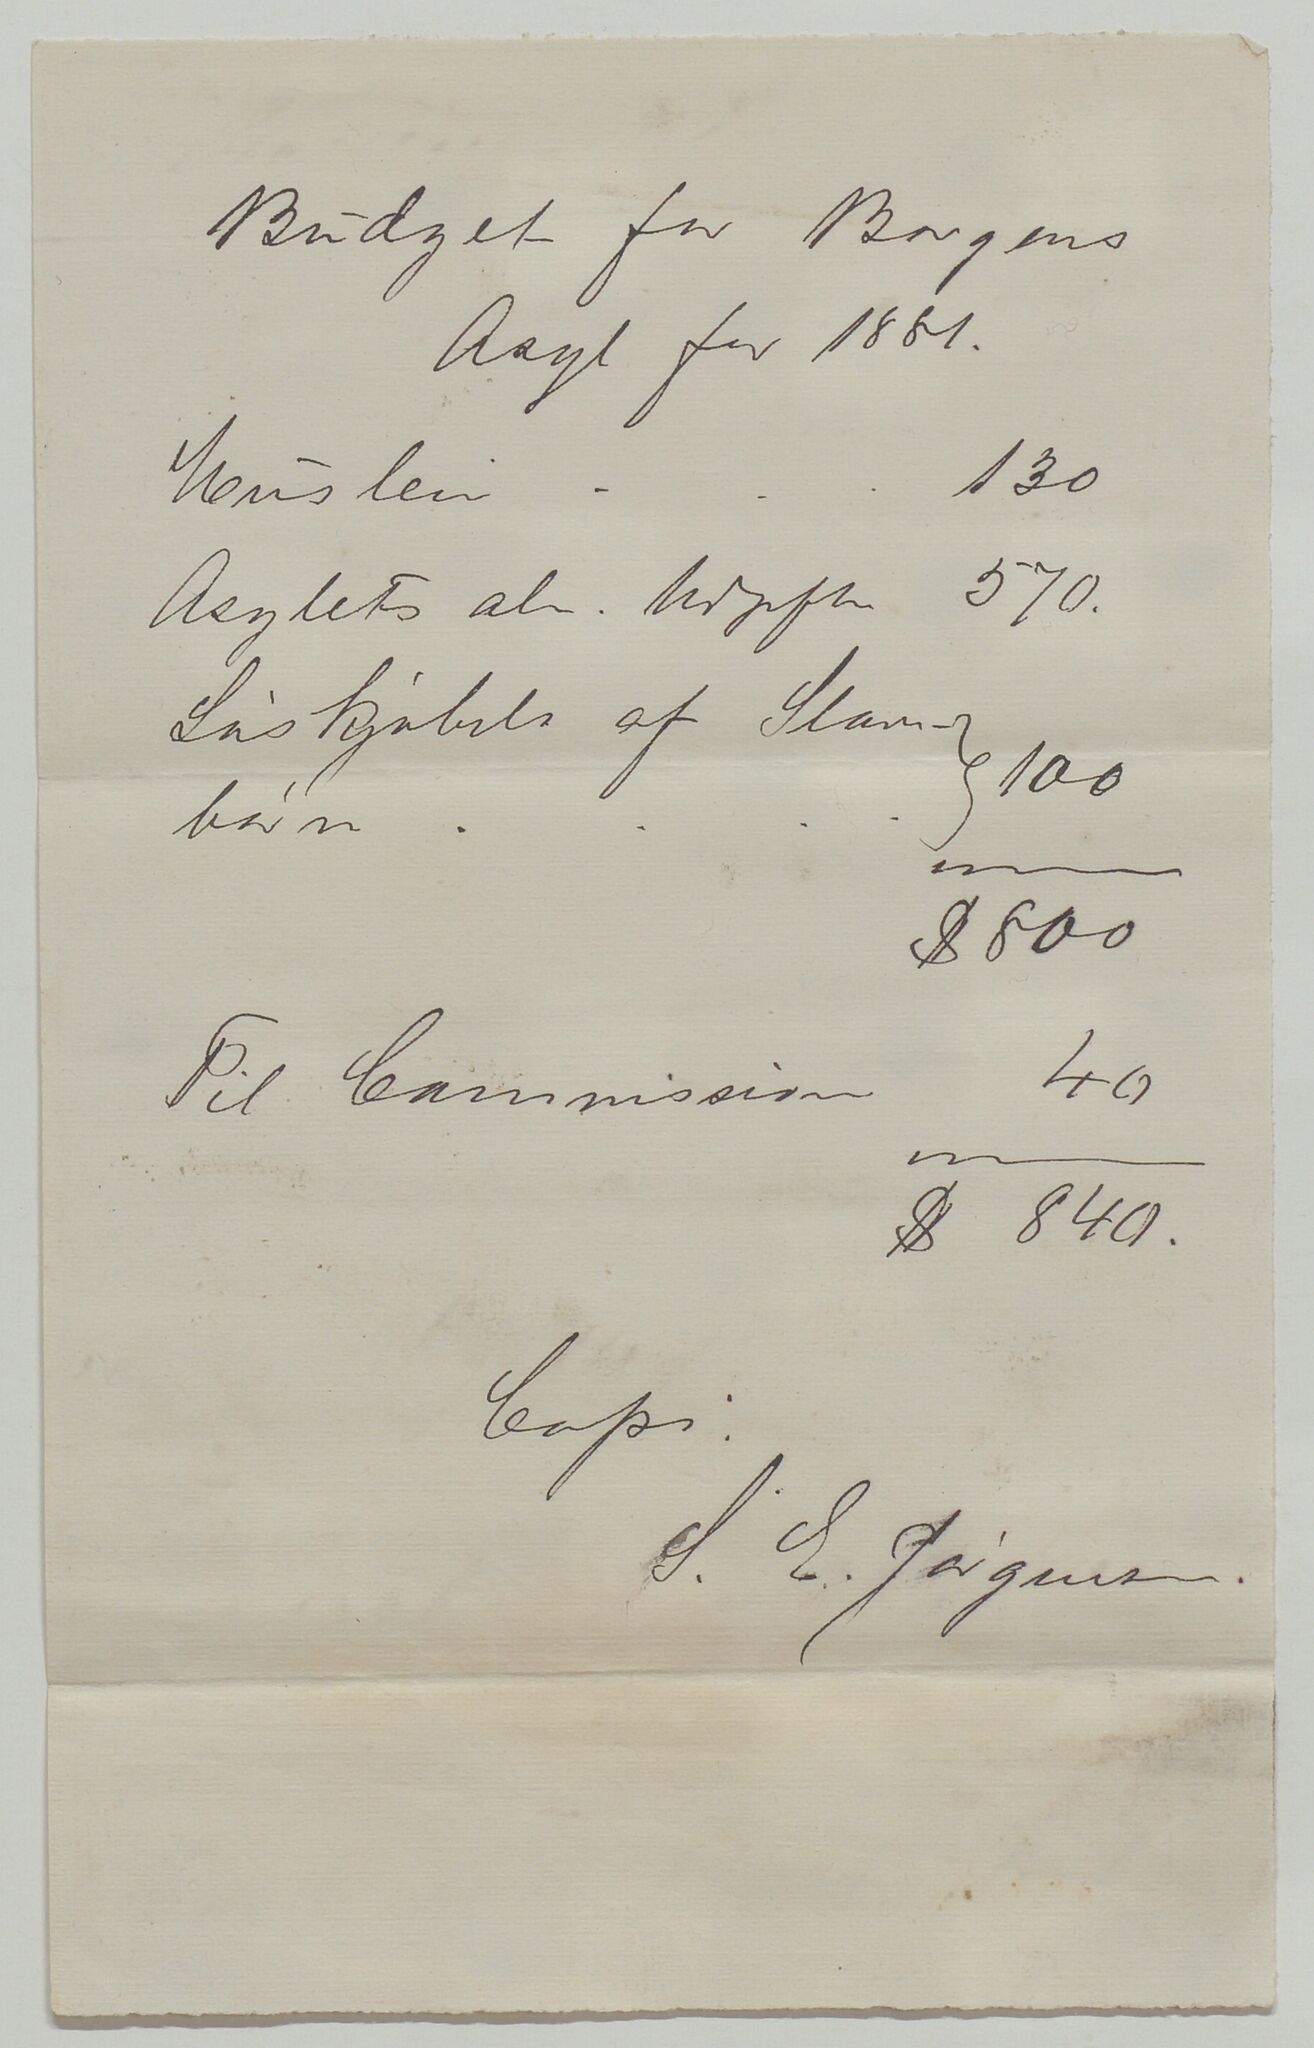 Budget for Borgens
Asyl for 1881.
Huusleie - . . 130
Asylets alm. Udgifter 570.
Løskjøbelse af Slave- } 100
børn . . . .
$ 800
Til Commission 40
$ 840.
Copi:
S. E. Jørgensen.